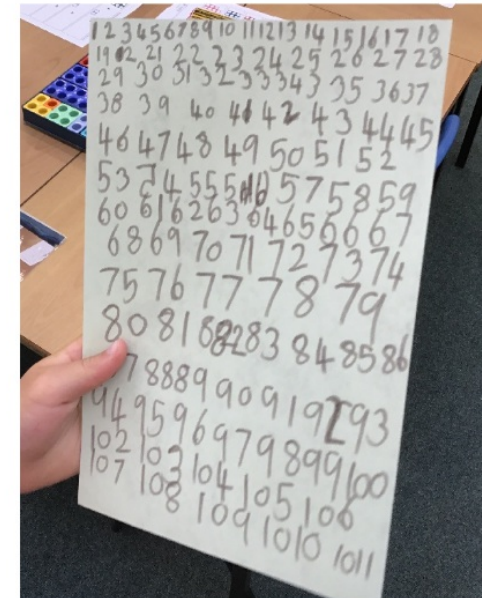 1 2 3 4 5 6 7 8 9 10 11 12 13 14 15 16 17 18
19 12, 21 22 23 24 25 26 27 28
29 30 31 32 33 34 3 35 36 37
38 39 40 41 42 43 44 45
46 47 48 49 50 51 52
53 54 55 56 57 58 59
60 61 62 63 64 65 66 67
68 69 70 71 72 73 74
75 76 77 78 79
80 81 82 83 84 85 86
7 88 89 90 91 92 93
94 95 96 97 98 99 100
102 103 104 105 106
107 108 109 1010 1011